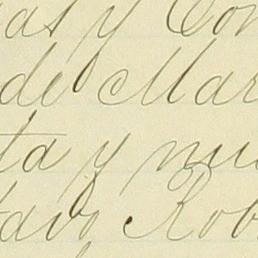 as y Con
de Mar
ta y nu
tavo Rob